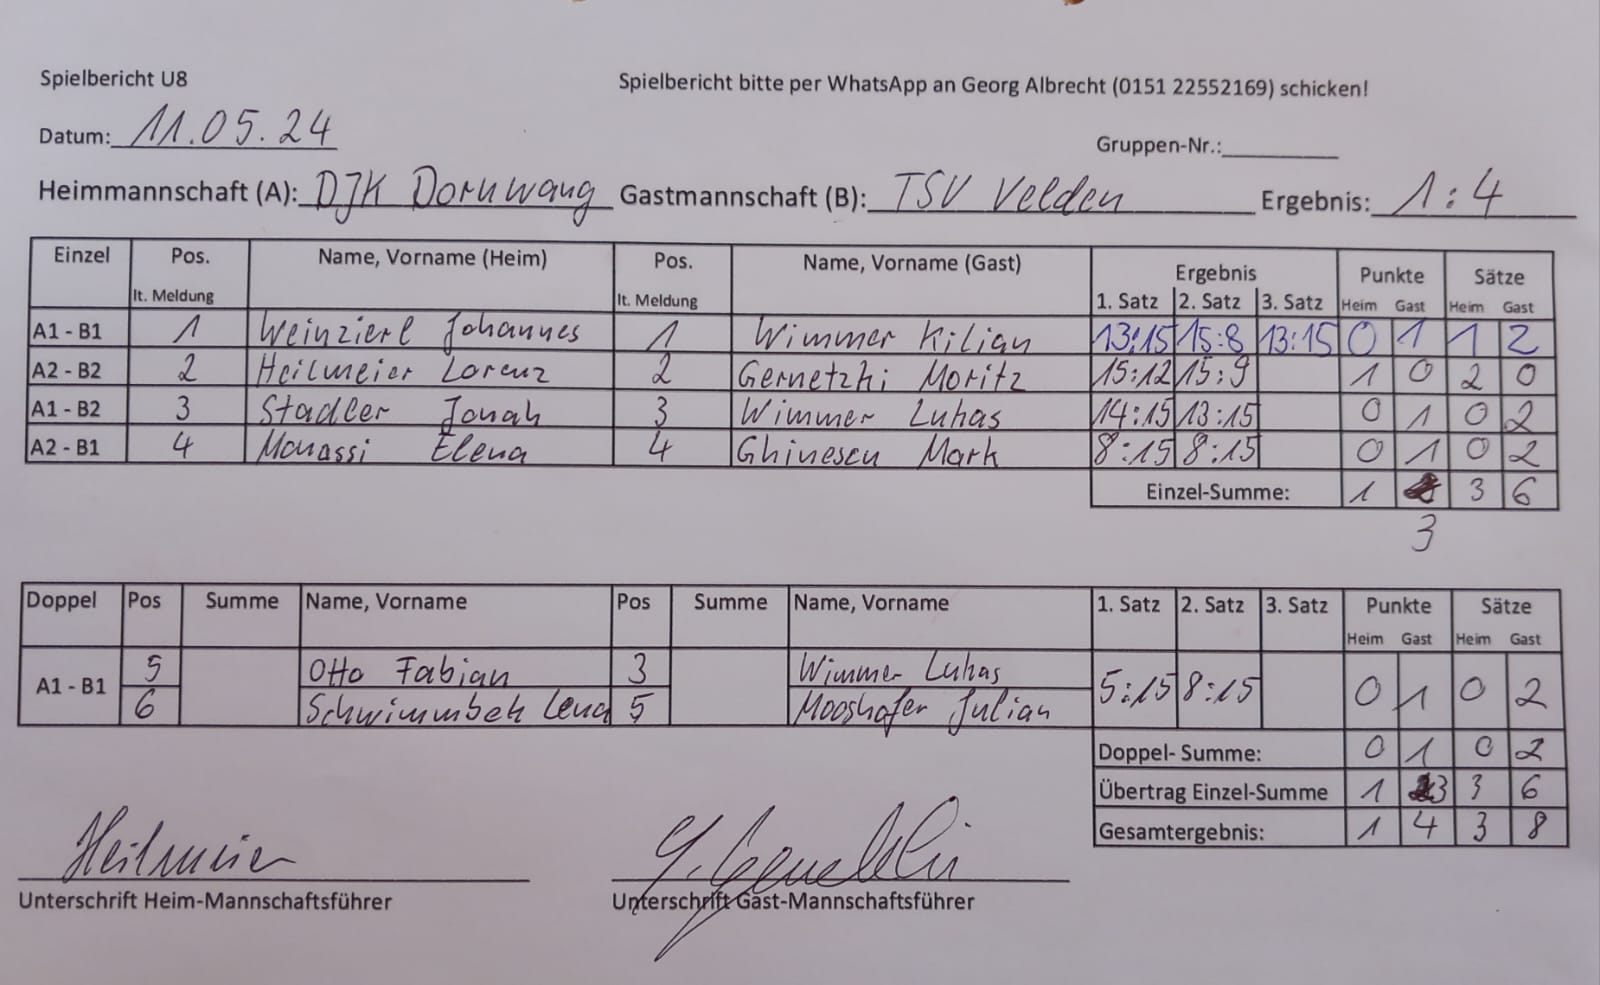 Spielbericht U8 Spielbericht bitte per WhatsApp an Georg Albrecht (0151 22552169) schicken!
Datum: 11.05.24 Gruppen-Nr.:
Heimmannschaft (A): DJK Dornwang Gastmannschaft (B): TSV Velden Ergebnis: 1:4
Einzel Pos. Name, Vorname (Heim) Pos. Name, Vorname (Gast) Ergebnis Punkte Sätze
lt. Meldung lt. Meldung 1. Satz 2. Satz 3. Satz Heim Gast Heim Gast
A1 - B1 1 Weinzierl Johannes 1 Wimmer Kilian 13:15 15:8 13:15 0 1 1 2
A2 - B2 2 Heilmeier Lorenz 2 Gernetzki Moritz 15:12 15:9 1 0 2 0
A1 - B2 3 Stadler Jonah 3 Wimmer Lukas 14:15 13:15 0 1 0 2
A2 - B1 4 Monassi Elena 4 Ghinescu Mark 8:15 8:15 0 1 0 2
Einzel-Summe: 1 3 6
3
Doppel Pos Summe Name, Vorname Pos Summe Name, Vorname 1. Satz 2. Satz 3. Satz Punkte Sätze
Heim Gast Heim Gast
A1 - B1 5 Otto Fabian 3 Wimmer Lukas 5:15 8:15 0 1 0 2
6 Schwimmbek Lena 5 Mooshofer Julian
Doppel- Summe: 0 1 0 2
Übertrag Einzel-Summe 1 3 3 6
Gesamtergebnis: 1 4 3 8
Heilmeier
Unterschrift Heim-Mannschaftsführer Unterschrift Gast-Mannschaftsführer